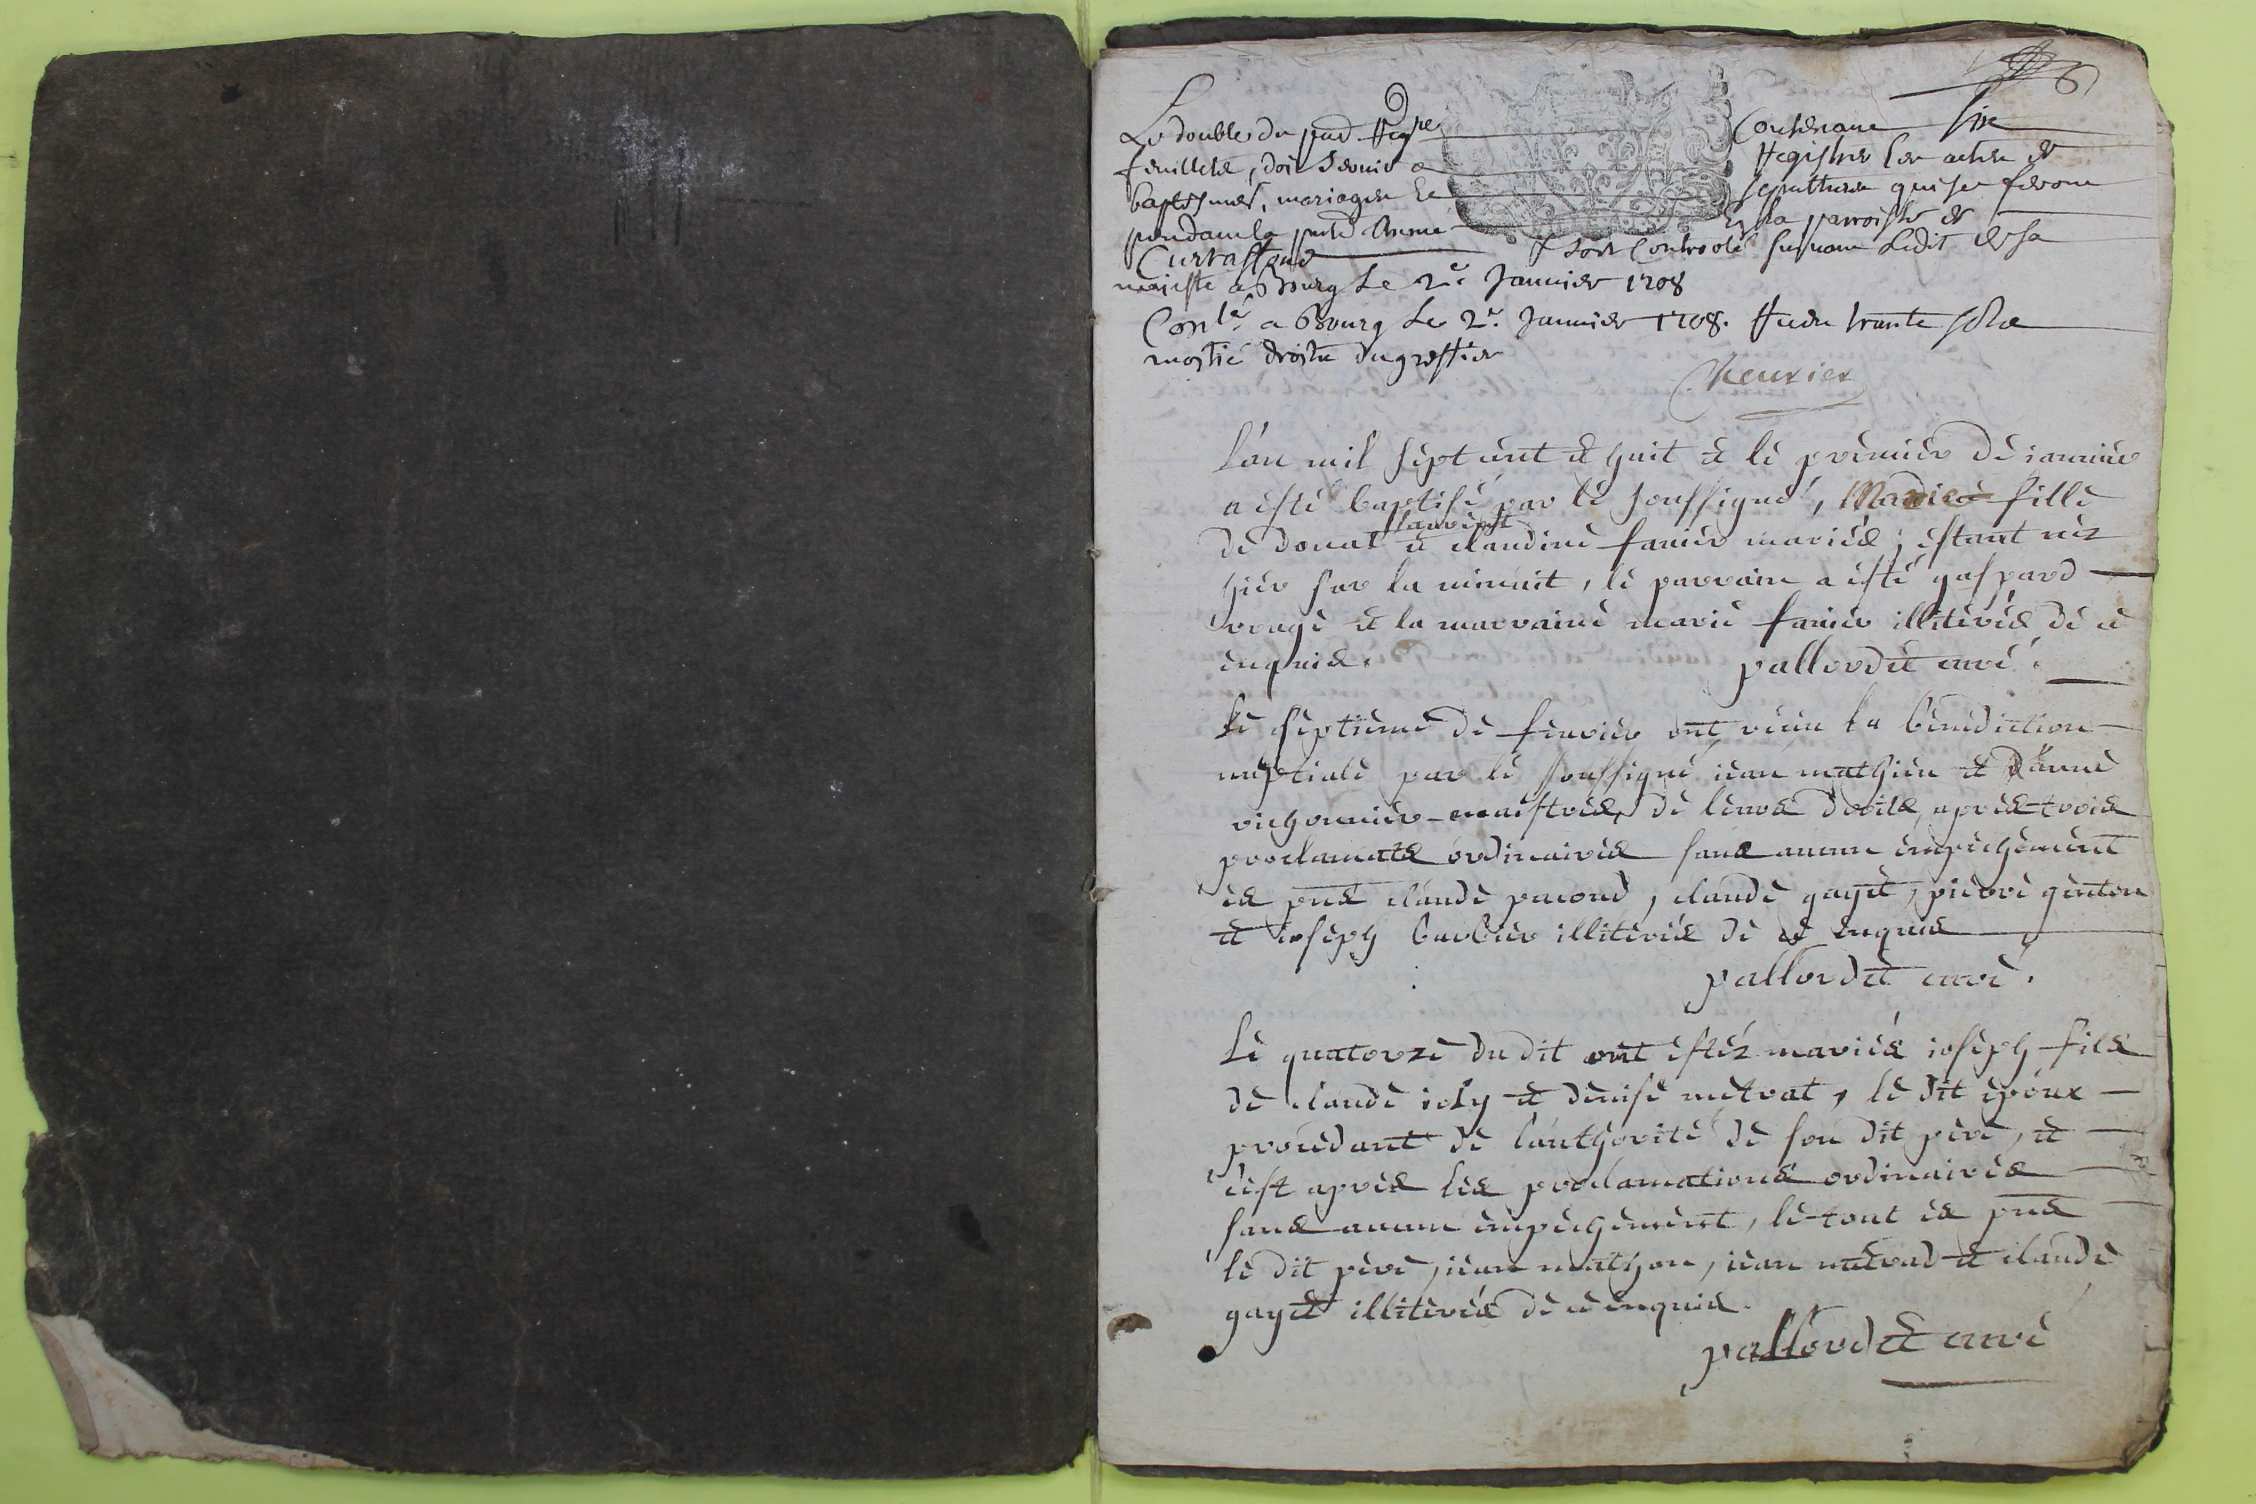 Le double du pnt Regre Contenant six
feuillets, doit servir a Registrer les actes de
baptesmes, mariages et sepultures qui se feront
pendant la pnte Année En la parroisse de
Curtafond Et soit Controolé suivant Ledit de sa
majesté a Bourg Le 2e Janvier 1708
Conlé a Bourg Le 2e Janvier 1708. Receu trante sols
moitié droits du greffier
L'an mil sept cent et huit et le premier de ianvier
a esté baptisé par le soussigné, Marie fille
de Donat et claudine fanier mariés; estant nez
hier sur la minuit, le parrain a esté gaspard
et la marraine marie fanier illiterés de ce
enquis. pallordet curé.
Le septieme de fevrier ont receu la benediction
nuptiale par le soussigné iean mathieu et D'anne
vichonnier maistres de leurs droits, apres trois
proclamats ordinaires sans aucun empechement
es pnts claude pacoud, claude gayet, pierre genton
et ioseph barbier illiterés de ce enquis
pallordet curé.
Le quatorze du dit ont estéz mariés ioseph fils
de claude ioly et denise metrat, le dit epoux
procedant de l'authorité de son dit pere, et
c'est apres les proclamations ordinaires
sans aucun empechement, le tout es pnts
le dit pere, iean mathon, iean metrad et claude
gayet illiterés de ce enquis.
pallordet curé